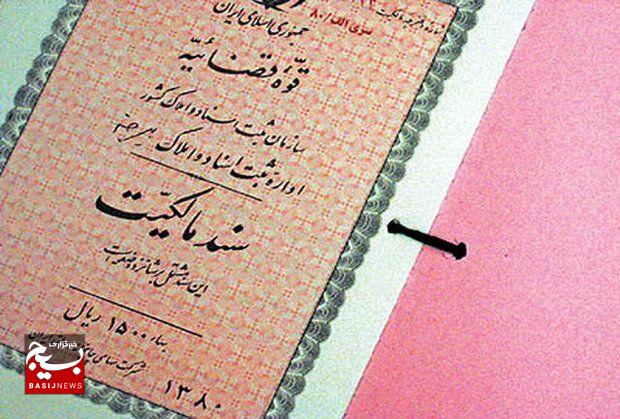 سری الف / ۸۰
جمهوری اسلامی ایران
قوّهٔ قضائیه
سازمان ثبت اسناد و املاک کشور
ادارهٔ ثبت اسناد و املاک
سند مالکیّت
این سند مشتمل بر شانزده صفحه است
بهاء ۱۵۰۰ ریال
شرکت سهامی چاپ
۱۳۸۰
خبرگزاری
بسیج
BASIJNEWS